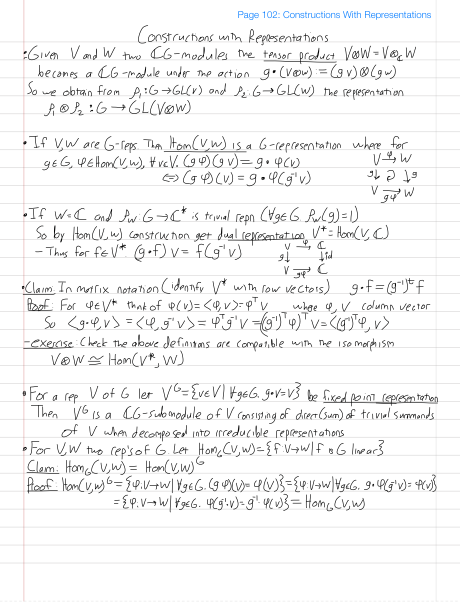 Page 102: Constructions With Representations
Constructions with Representations
• Given V and W two ℂG-modules the tensor product V⊗W = V⊗_ℂ W
becomes a ℂG-module under the action g•(v⊗w) = (gv)⊗(gw)
So we obtain from ρ₁: G→GL(V) and ρ₂: G→GL(W) the representation
ρ₁⊗ρ₂: G→GL(V⊗W)
• If V,W are G-reps. Then Hom(V,W) is a G-representation where for
g∈G, φ∈Hom(V,W), ∀v∈V. (gφ)(gv) = g•φ(v)
⇔ (gφ)(v) = g•φ(g⁻¹v)
V →φ W
g↓ ↻ ↓g
V →gφ W
• If W=ℂ and ρ_W: G→ℂ* is trivial repn (∀g∈G ρ_W(g)=1)
So by Hom(V,W) construction get dual representation V* = Hom(V,ℂ)
- Thus for f∈V* (g•f)v = f(g⁻¹v)
V →φ ℂ
g↓ ↓id
V →gφ ℂ
• Claim: In matrix notation (identify V* with row vectors) g•f = (g⁻¹)ᵗf
Proof: For φ∈V* think of φ(v) = <φ,v> = φᵀv where φ,v column vector
So <g•φ,v> = <φ,g⁻¹v> = φᵀg⁻¹v = ((g⁻¹)ᵀφ)ᵀv = <(g⁻¹)ᵀφ,v>
- exercise: Check the above definitions are compatible with the isomorphism
V⊗W ≅ Hom(V*,W)
• For a rep V of G let V^G = {v∈V | ∀g∈G. g•v=v} be fixed point representation
Then V^G is a ℂG-submodule of V consisting of direct (sum) of trivial summands
of V when decomposed into irreducible representations
• For V,W two rep's of G. Let Hom_G(V,W) = {f:V→W | f is G linear}
Claim: Hom_G(V,W) = Hom(V,W)^G
Proof: Hom(V,W)^G = {φ:V→W | ∀g∈G. (gφ)(v) = φ(v)} = {φ:V→W | ∀g∈G. g•φ(g⁻¹v) = φ(v)}
= {φ:V→W | ∀g∈G. φ(g⁻¹•v) = g⁻¹•φ(v)} = Hom_G(V,W)